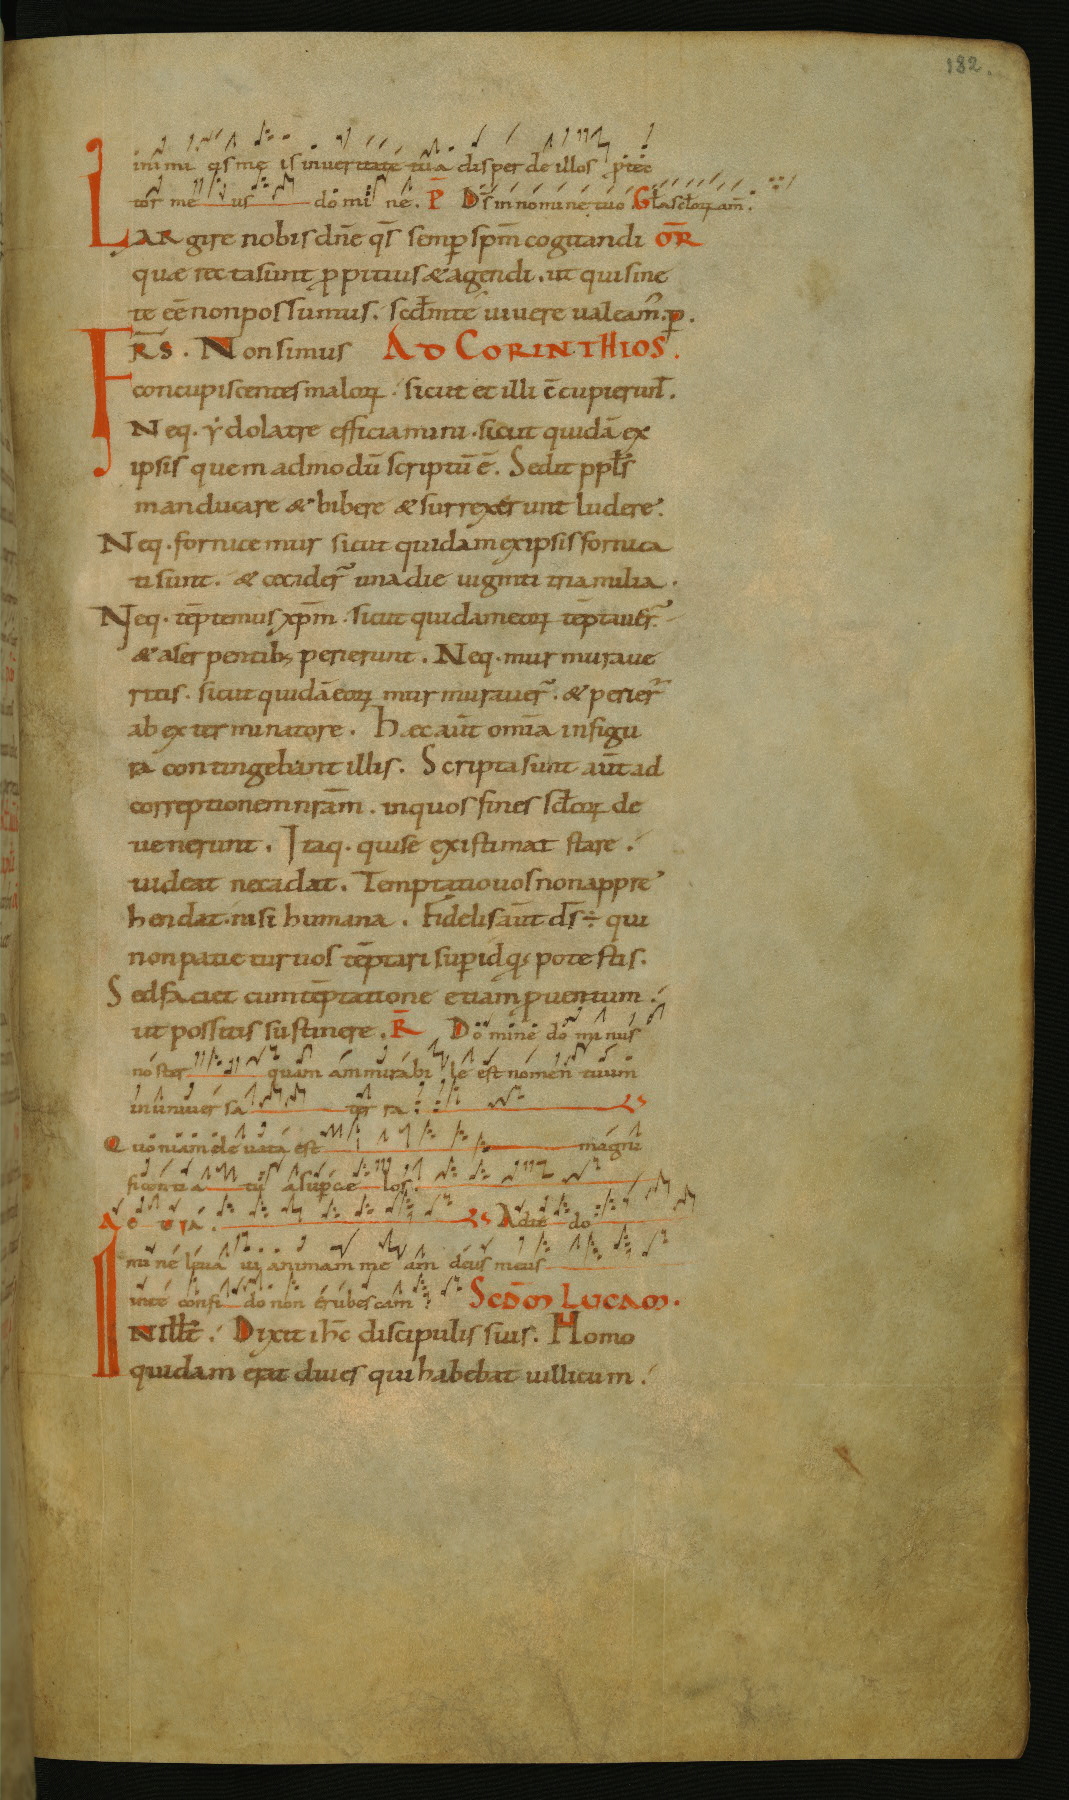 182.
inimi cis me is in veritate tua disperde illos p̄tec
tor me us do mi ne. P̄ Ds̄ in nomine tuo. Gła scłoꝝ am̄.
LARgire nobis dn̄e qs̄ semp̄ spm̄ cogitandi OR̄
quæ recta sunt ꝓpitius & agendi. ut qui sine
te eē non possumus. scdm̄ te vivere valeam̄. p̄.
FR̄S. Non simus AD CORINTHIOS.
concupiscentes maloꝝ. sicut et illi c̄cupierun̄t.
Neq. ẏdolatre efficiamini. sicut quidā ex
ipsis quem admodū scriptū ē. Sedit ppl̄s
manducare & bibere & surrexerunt ludere.
Neq. fornicemur sicut quidam ex ipsis fornica
ti sunt. & cecider̄ una die viginti tria milia.
Neq. tēptemus xp̄m. sicut quidam eoꝝ tēptaver̄
& a serpentib; perierunt. Neq. murmurave
ritis. sicut quidā eoꝝ murmuraver̄. & perier̄
ab exterminatore. Hec aūt om̄ia in figu
ra contingebant illis. Scripta sunt aūt ad
correptionem nr̄am. in quos fines scłoꝝ de
venerunt. Itaq. qui se existimat stare.
videat ne cadat. Temptatio vos non appre
hendat. nisi humana. Fidelis aūt ds̄ ÷ qui
non patietur vos tēptari sup̄ id q; potestis.
Sed faciet cum tēptatione etiam p̄ventum.
ut possitis sustinere. R̄ Domine dominus
noster quam ammirabi le est nomen tuum
in univer sa ter ra.
Quoniam elevata est magni
ficentia tu a sup̄ ce los.
A E V I A. Ad te do
mine levavi animam me am deus meus
in te confi do non erubescam SCDM LUCAM.
IN illt̄. Dixit ihc̄ discipulis suis. Homo
quidam erat dives qui habebat villicum.